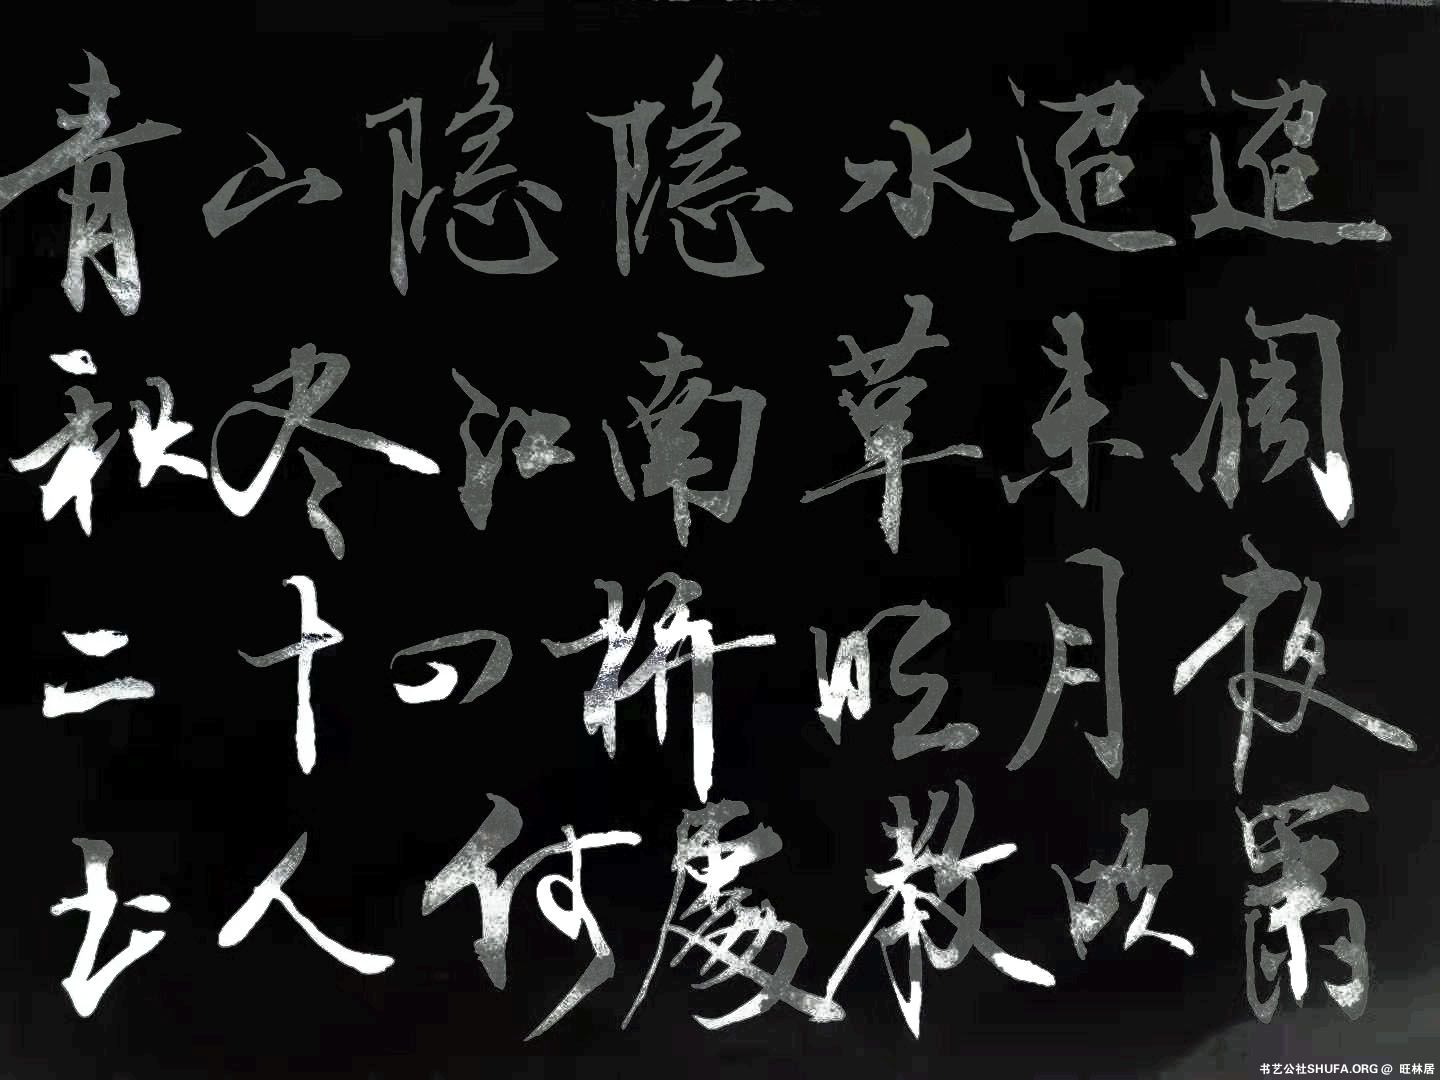 青山隐隐水迢迢
秋尽江南草未凋
二十四桥明月夜
玉人何處教吹箫
书艺公社SHUFA.ORG @ 旺林居